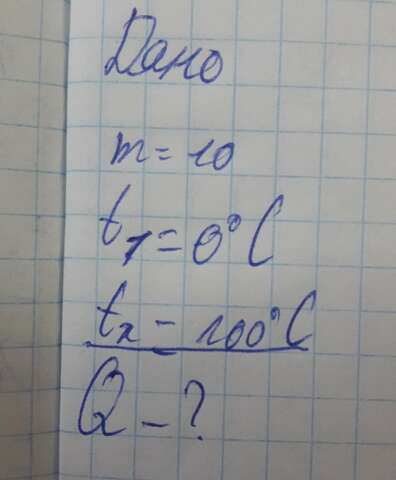 Дано
m = 10
t₁ = 0°C
t₂ = 100°C
Q - ?